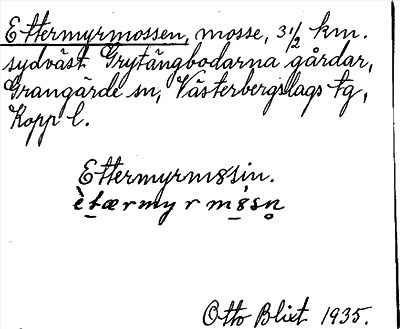 Ettermyrmossen, mosse, 3½ km.
sydväst Grytängbodarna gårdar,
Grangärde sn, Västerbergslags tg,
Kopp l.
Ettermyrm8sin.
Otto Blixt 1935.